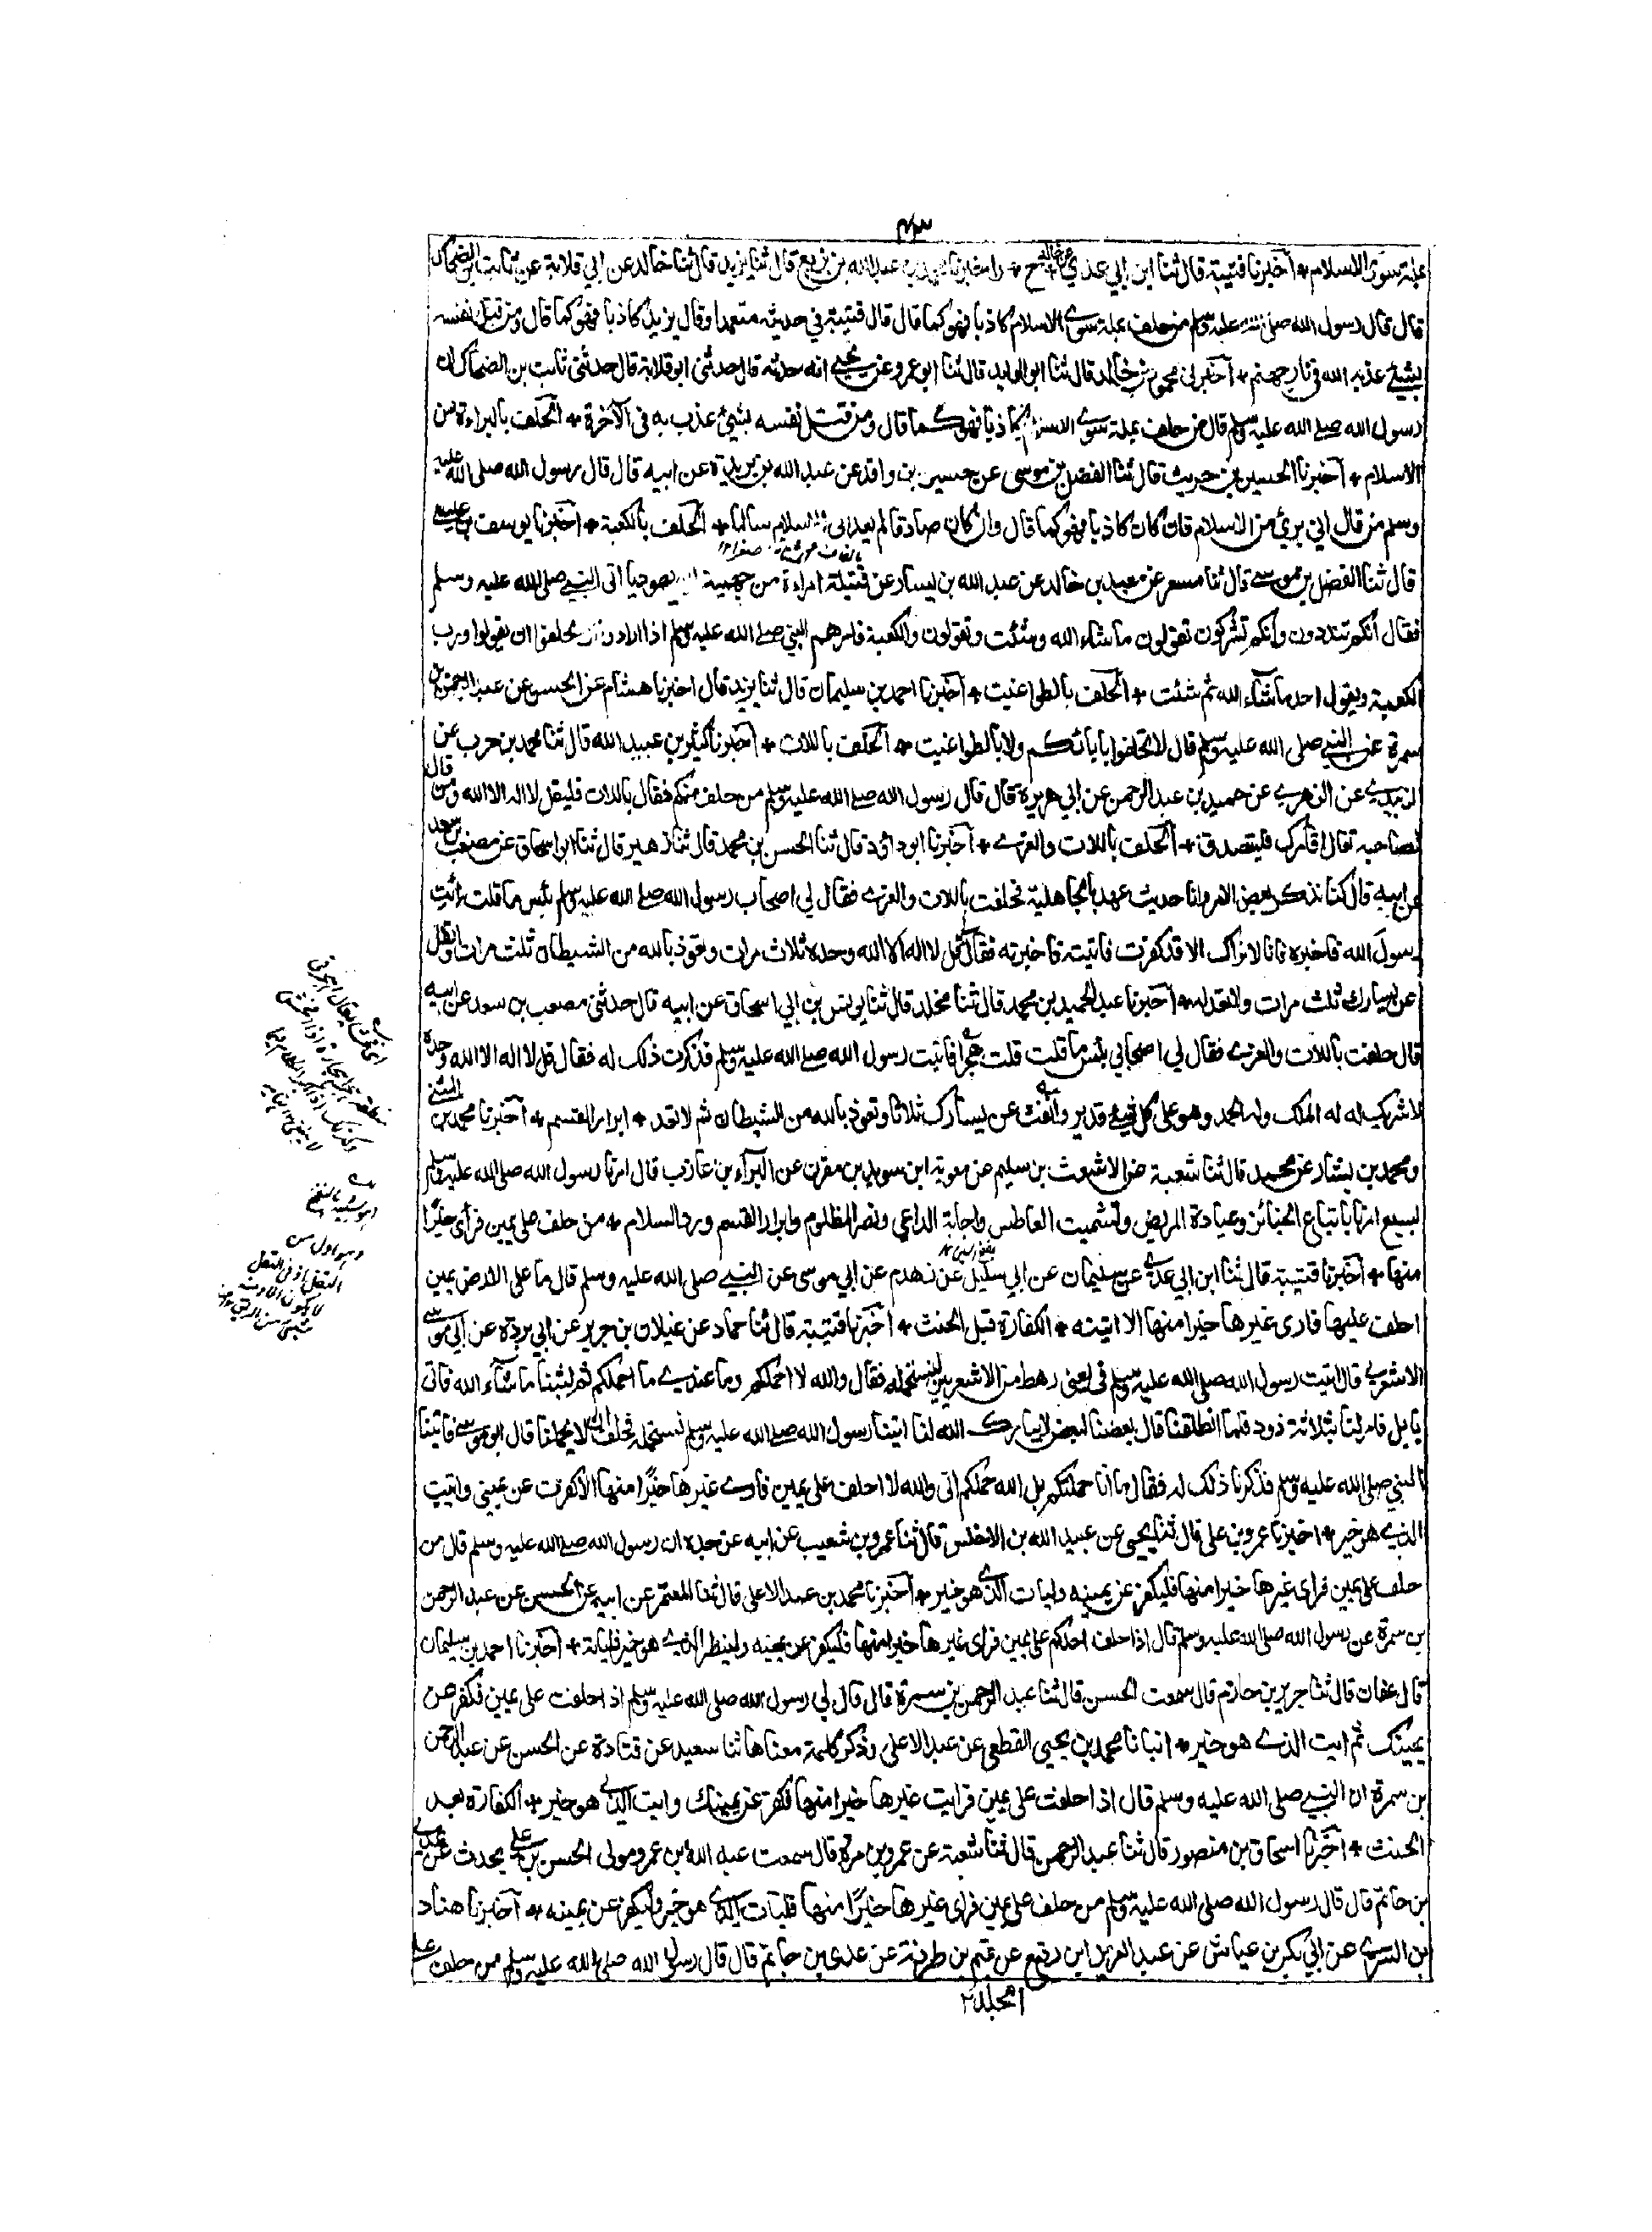 ۴۳
بملة سوى الاسلام * اخبرنا قتيبة قال ثنا ابن ابي عدي عن خالد ح * واخبرنا محمد بن عبدالله بن بزيع قال ثنا يزيد قال ثنا خالد عن ابي قلابة عن ثابت بن الضحاك
قال قال رسول الله صلى الله عليه وسلم من حلف بملة سوى الاسلام كاذبا فهو كما قال قال قتيبة في حديثه متعمدا وقال يزيد كاذبا فهو كما قال ومن قتل نفسه
بشيئ عذبه الله في نار جهنم * اخبرني محمود بن خالد قال ثنا ابو الوليد قال ثنا ابو عمرو عن يحيى انه حدثه قال حدثنى ابو قلابة قال حدثنى ثابت بن الضحاك ان
رسول الله صلى الله عليه وسلم قال من حلف بملة سوى الاسلام كاذبا فهو كما قال ومن قتل نفسه بشيئ عذب به فى الآخرة * الحلف بالبراءة من
الاسلام * اخبرنا الحسين بن حريث قال ثنا الفضل بن موسى عن حسين بن واقد عن عبد الله بن بريدة عن ابيه قال قال رسول الله صلى الله عليه
وسلم من قال اني بريئ من الاسلام فان كان كاذبا فهو كما قال وان كان صادقا لم يعد الى الاسلام سالما * الحلف بالكعبة * اخبرنا يوسف بن عيسى
قال ثنا الفضل بن موسى قال ثنا مسعر عن معبد بن خالد عن عبد الله بن يسار عن قتيلة امراءة من جهينة ان يهوديا اتى النبي صلى الله عليه وسلم
فقال انكم تنددون وانكم تشركون تقولون ما شاء الله وشئت وتقولون والكعبة فامرهم النبي صلى الله عليه وسلم اذا ارادوا ان يحلفوا ان يقولوا ورب
الكعبة ويقول احد ما شاء الله ثم شئت * الحلف بالطواغيت * اخبرنا احمد بن سليمان قال ثنا يزيد قال اخبرنا هشام عن الحسن عن عبد الرحمن بن
سمرة عن النبي صلى الله عليه وسلم قال لا تحلفوا بآبائكم ولا بالطواغيت * الحلف باللات * اخبرنا كثير بن عبيد الله قال ثنا محمد بن حرب عن
الزبيدي عن الزهري عن حميد بن عبد الرحمن عن ابي هريرة قال قال رسول الله صلى الله عليه وسلم من حلف منكم فقال باللات فليقل لا اله الا الله ومن قال
لصاحبه تعال اقامرك فليتصدق * الحلف باللات والعزى * اخبرنا ابو داؤد قال ثنا الحسن بن محمد قال ثنا زهير قال ثنا ابو اسحاق عن مصعب بن سعد
عن ابيه قال كنا نذكر بعض الامر وانا حديث عهد بالجاهلية فحلفت باللات والعزى فقال لي اصحاب رسول الله صلى الله عليه وسلم بئس ما قلت ائت
رسول الله فاخبره فانا لا نراك الا قد كفرت فاتيته فاخبرته فقال لي قل لا اله الا الله وحده ثلاث مرات وتعوذ بالله من الشيطان ثلث مرات واتفل
عن يسارك ثلث مرات ولا تعد له * اخبرنا عبد الحميد بن محمد قال ثنا مخلد قال ثنا يونس بن ابي اسحاق عن ابيه قال حدثنى مصعب بن سعد عن ابيه
قال حلفت باللات والعزى فقال لي اصحابي بئس ما قلت قلت هجرا فاتيت رسول الله صلى الله عليه وسلم فذكرت ذلك له فقال قل لا اله الا الله وحده
لا شريك له له الملك وله الحمد وهو على كل شيئ قدير وانفث عن يسارك ثلاثا وتعوذ بالله من الشيطان ثم لا تعد * ابرار القسم * اخبرنا محمد بن المثنى
ومحمد بن بشار عن محمد قال ثنا شعبة عن الاشعث بن سليم عن معوية ابن سويد بن مقرن عن البراء بن عازب قال امرنا رسول الله صلى الله عليه وسلم
بسبع امرنا باتباع الجنائز وعيادة المريض وتشميت العاطس واجابة الداعي ونصر المظلوم وابرار القسم ورد السلام * من حلف على يمين فرأى خيرًا
منها * اخبرنا قتيبة قال ثنا ابن ابي عدي عن سليمان عن ابي سليل عن زهدم عن ابي موسى عن النبي صلى الله عليه وسلم قال ما على الارض يمين
احلف عليها فارى غيرها خيرا منها الا اتيته * الكفارة قبل الحنث * اخبرنا قتيبة قال ثنا حماد عن غيلان بن جرير عن ابي بردة عن ابي موسى
الاشعري قال اتيت رسول الله صلى الله عليه وسلم في رهط من الاشعريين نستحمله فقال والله لا احملكم وما عندي ما احملكم ثم لبثنا ما شاء الله فاتى
بابل فامر لنا بثلاثة ذود فلما انطلقنا قال بعضنا لبعض لا يبارك الله لنا اتينا رسول الله صلى الله عليه وسلم نستحمله فحلف ان لا يحملنا قال ابو موسى فاتينا
النبي صلى الله عليه وسلم فذكرنا ذلك له فقال ما انا حملتكم بل الله حملكم انى والله لا احلف على يمين فارى غيرها خيرًا منها الا كفرت عن يميني واتيت
الذي هو خير * اخبرنا عمرو بن على قال ثنا يحيى عن عبيد الله بن الاخنس قال ثنا عمرو بن شعيب عن ابيه عن جده ان رسول الله صلى الله عليه وسلم قال من
حلف على يمين فراى غيرها خيرا منها فليكفر عن يمينه وليات الذي هو خير * اخبرنا محمد بن عبد الاعلى قال ثنا المعتمر عن ابيه عن الحسن عن عبد الرحمن
بن سمرة عن رسول الله صلى الله عليه وسلم قال اذا حلف احدكم على يمين فراى غيرها خيرا منها فليكفر عن يمينه ولينظر الذي هو خير فلياته * اخبرنا احمد بن سليمان
قال عفان قال ثنا جرير بن حازم قال سمعت الحسن قال ثنا عبد الرحمن بن سمرة قال قال لي رسول الله صلى الله عليه وسلم اذا حلفت على يمين فكفر عن
يمينك ثم ايت الذي هو خير * انبانا محمد بن يحيى القطعي عن عبد الاعلى وذكر كلمة معناها ثنا سعيد عن قتادة عن الحسن عن عبد الرحمن
بن سمرة ان النبي صلى الله عليه وسلم قال اذا حلفت على يمين فرايت غيرها خيرا منها فكفر عن يمينك وايت الذي هو خير * الكفارة بعد
الحنث * اخبرنا اسحاق بن منصور قال ثنا عبد الرحمن قال ثنا شعبة عن عمرو بن مرة قال سمعت عبد الله بن عمرو مولى الحسن بن على يحدث عن عدي
بن حاتم قال قال رسول الله صلى الله عليه وسلم من حلف على يمين فراى غيرها خيرًا منها فليات الذي هو خير وليكفر عن يمينه * اخبرنا هناد
بن السري عن ابي بكر بن عياش عن عبد العزيز ابن رفيع عن تميم بن طرفة عن عدي بن حاتم قال قال رسول الله صلى الله عليه وسلم من حلف على
مجلد ۲